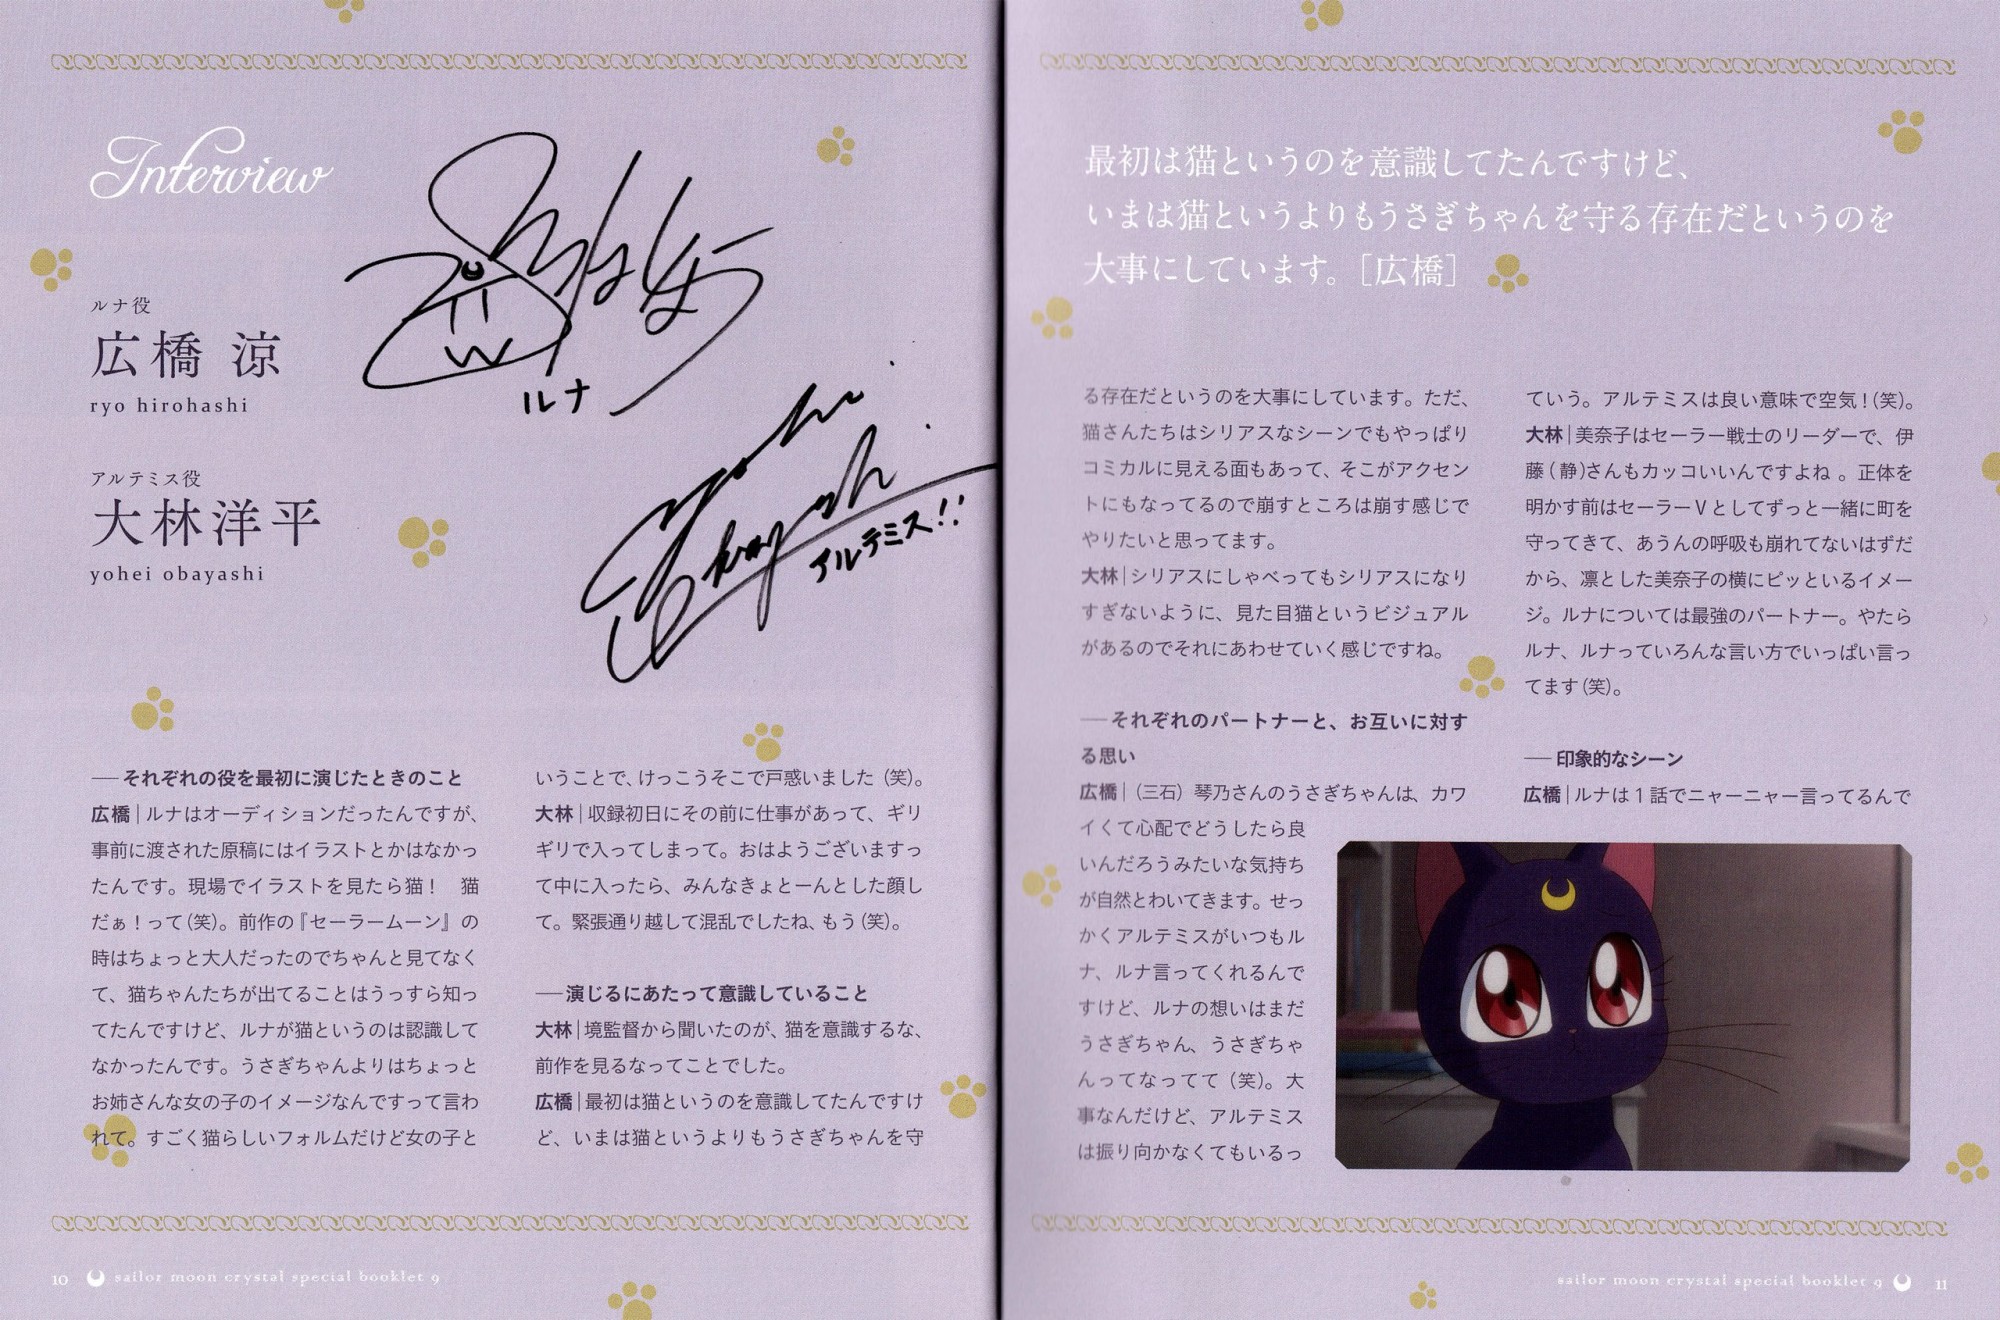 Interview
ルナ役
広橋 涼
ryo hirohashi
アルテミス役
大林洋平
yohei obayashi
ルナ
アルテミス!!
── それぞれの役を最初に演じたときのこと
広橋｜ルナはオーディションだったんですが、
事前に渡された原稿にはイラストとかはなかっ
たんです。現場でイラストを見たら猫！　猫
だぁ！って（笑）。前作の『セーラームーン』の
時はちょっと大人だったのでちゃんと見てなく
て、猫ちゃんたちが出てることはうっすら知っ
てたんですけど、ルナが猫というのは認識して
なかったんです。うさぎちゃんよりはちょっと
お姉さんな女の子のイメージなんですって言わ
れて。すごく猫らしいフォルムだけど女の子と
いうことで、けっこうそこで戸惑いました（笑）。
大林｜収録初日にその前に仕事があって、ギリ
ギリで入ってしまって。おはようございますっ
て中に入ったら、みんなきょとーんとした顔し
て。緊張通り越して混乱でしたね、もう（笑）。
── 演じるにあたって意識していること
大林｜境監督から聞いたのが、猫を意識するな、
前作を見るなってことでした。
広橋｜最初は猫というのを意識してたんですけ
ど、いまは猫というよりもうさぎちゃんを守
10 sailor moon crystal special booklet 9
最初は猫というのを意識してたんですけど、
いまは猫というよりもうさぎちゃんを守る存在だというのを
大事にしています。［広橋］
る存在だというのを大事にしています。ただ、
猫さんたちはシリアスなシーンでもやっぱり
コミカルに見える面もあって、そこがアクセン
トにもなってるので崩すところは崩す感じで
やりたいと思ってます。
大林｜シリアスにしゃべってもシリアスになり
すぎないように、見た目猫というビジュアル
があるのでそれにあわせていく感じですね。
── それぞれのパートナーと、お互いに対す
る思い
広橋｜（三石）琴乃さんのうさぎちゃんは、カワ
イくて心配でどうしたら良
いんだろうみたいな気持ち
が自然とわいてきます。せっ
かくアルテミスがいつもル
ナ、ルナ言ってくれるんで
すけど、ルナの想いはまだ
うさぎちゃん、うさぎちゃ
んってなってて（笑）。大
事なんだけど、アルテミス
は振り向かなくてもいるっ
ていう。アルテミスは良い意味で空気！（笑）。
大林｜美奈子はセーラー戦士のリーダーで、伊
藤（静）さんもカッコいいんですよね 。正体を
明かす前はセーラーVとしてずっと一緒に町を
守ってきて、あうんの呼吸も崩れてないはずだ
から、凛とした美奈子の横にピッといるイメー
ジ。ルナについては最強のパートナー。やたら
ルナ、ルナっていろんな言い方でいっぱい言っ
てます（笑）。
── 印象的なシーン
広橋｜ルナは1話でニャーニャー言ってるんで
sailor moon crystal special booklet 9 11